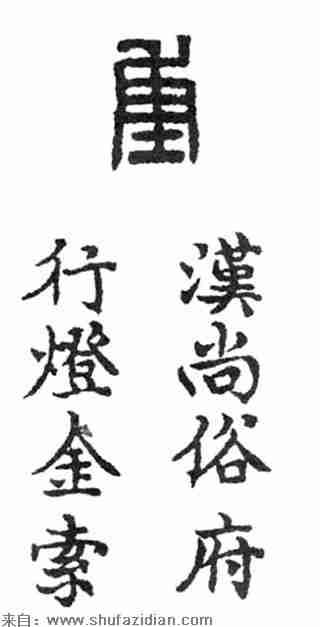 重
漢尚俗府
行燈金索
来自：www.shufazidian.com